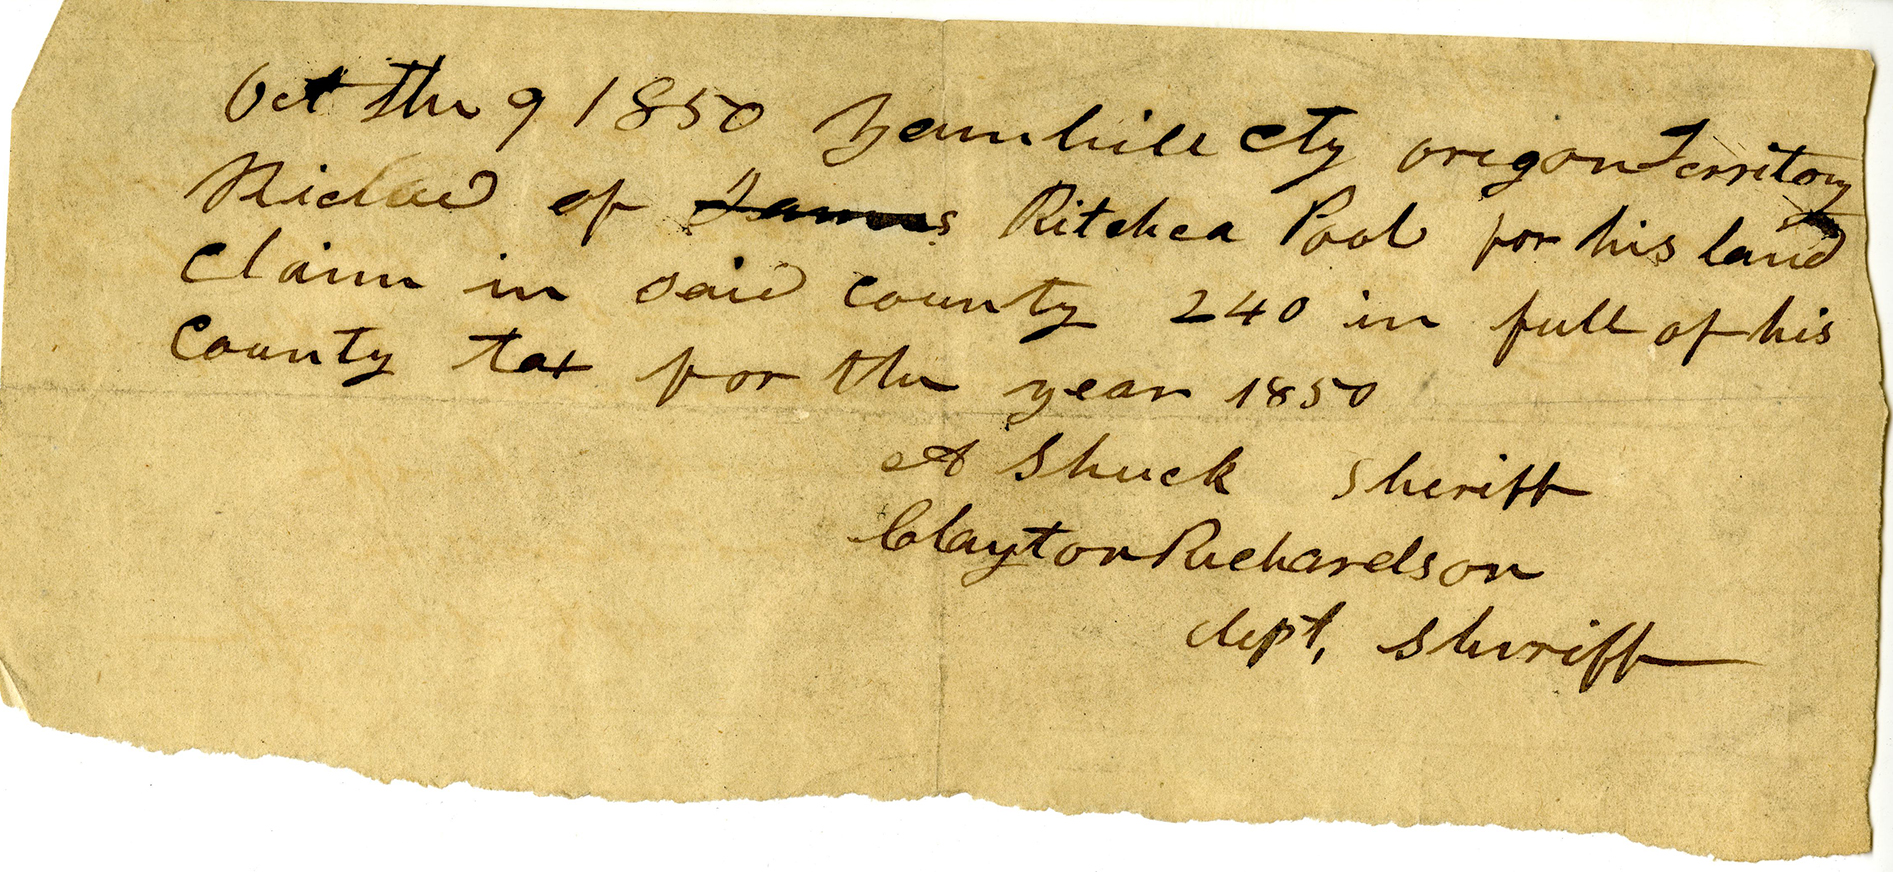 Oct the 9 1850 Yamhill cty oregon Territory
Riclad of James Ritchea Pool for his land
Claim in said county 240 in full of his
County tax for the year 1850
A Shuck Sheriff
Clayton Richardson
dept, Sheriff